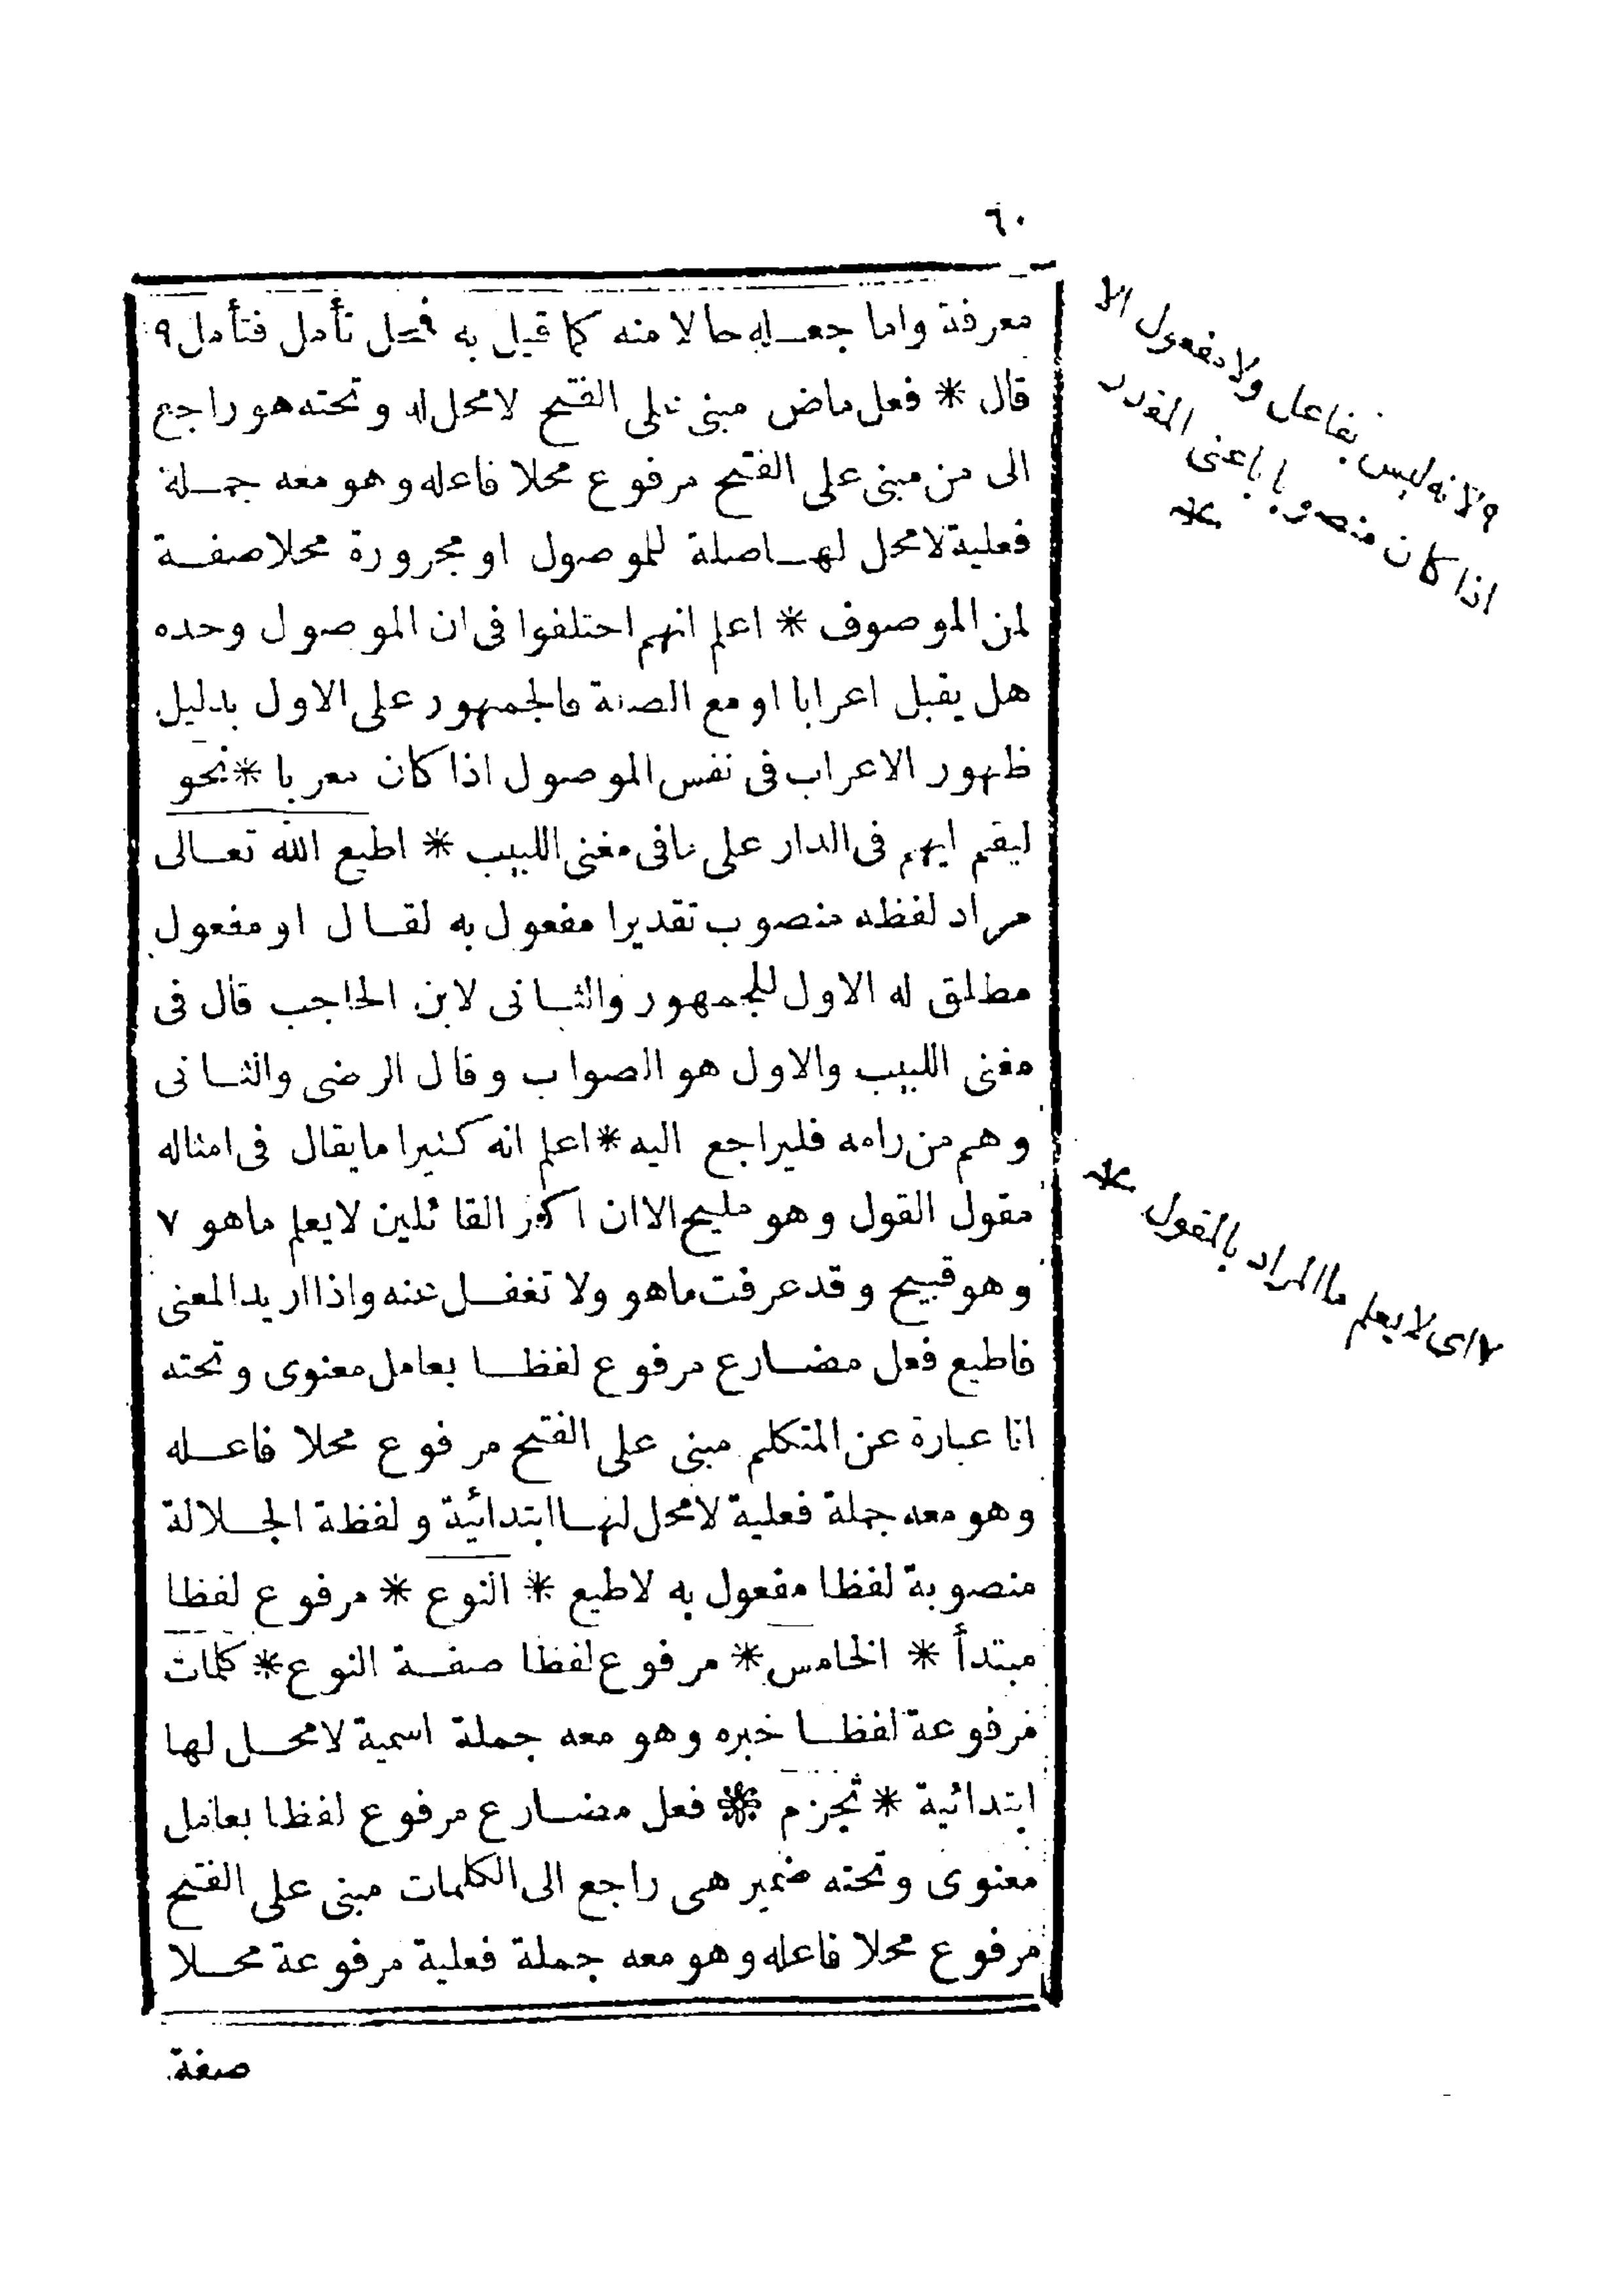 ٦٠
معرفة واما جعله حالا منه كما قيل به فمحل تأمل فتأمل ٩
قال * فعل ماض مبنى على الفتح لامحل له وتحته هو راجع
الى من مبنى على الفتح مرفوع محلا فاعله وهو معه جملة
فعلية لامحل لها صلة للموصول او مجرورة محلا صفة
لمن الموصوف * اعلم انهم اختلفوا فى ان الموصول وحده
هل يقبل اعرابا او مع الصلة فالجمهور على الاول بدليل
ظهور الاعراب فى نفس الموصول اذا كان معربا * نحو
ليقم ايهم فى الدار على مافى مغنى اللبيب * اطيع الله تعالى
مراد لفظه منصوب تقديرا مفعول به لقال او مفعول
مطلق له الاول للجمهور والثانى لابن الحاجب قال فى
مغنى اللبيب والاول هو الصواب وقال الرضى والثانى
وهم من رامه فليراجع اليه * اعلم انه كثيرا مايقال فى امثاله
مقول القول وهو مليح الاان اكثر القائلين لايعلم ماهو ٧
وهو قبيح وقد عرفت ماهو ولا تغفل عنه واذا اريد المعنى
فاطيع فعل مضارع مرفوع لفظا بعامل معنوى وتحته
انا عبارة عن المتكلم مبنى على الفتح مرفوع محلا فاعله
وهو معه جملة فعلية لامحل لها ابتدائية ولفظة الجلالة
منصوبة لفظا مفعول به لاطيع * النوع * مرفوع لفظا
مبتدأ * الخامس * مرفوع لفظا صفة النوع * كلمات
مرفوعة لفظا خبره وهو معه جملة اسمية لامحل لها
ابتدائية * تجزم * فعل مضارع مرفوع لفظا بعامل
معنوى وتحته ضمير هى راجع الى الكلمات مبنى على الفتح
مرفوع محلا فاعله وهو معه جملة فعلية مرفوعة محلا
صفة
٩ لانه ليس بفاعل ولا مفعول الا
اذا كان منصوبا باعنى المقدر
*
٧ اى لا يعلم ما المراد بالمقول *